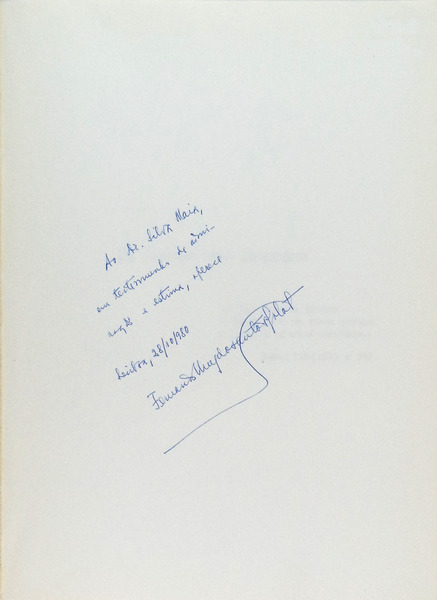 Ao Dr. Silva Maia,
em testemunho de admi-
ração e estima, oferece
Lisboa, 28/10/980
Fernando